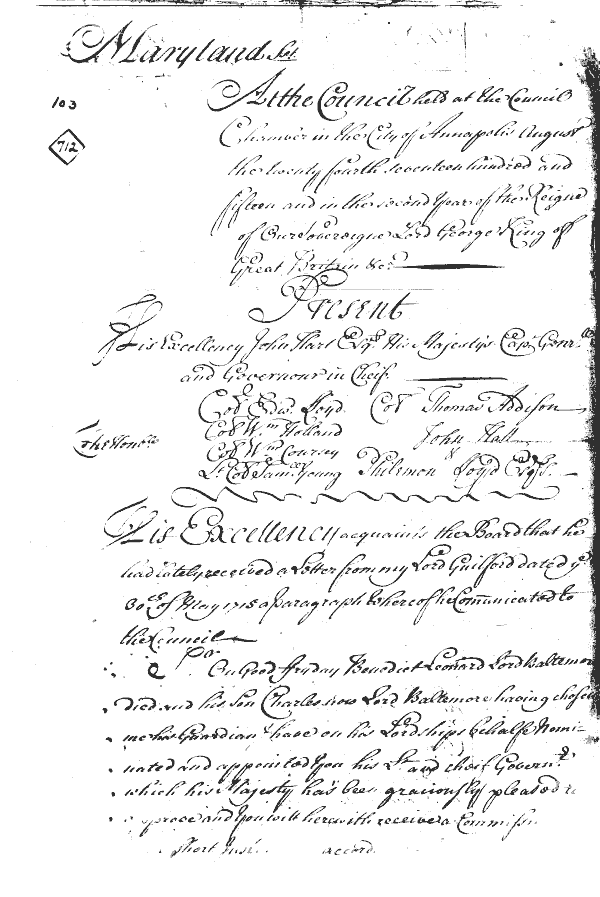 Maryland Sct
103
712
At the Council held at the Council
Chamber in the City of Annapolis August
the twenty fourth seventeen hundred and
fifteen and in the second Year of the Reigne
of Our Sovereigne Lord George King of
Great Britain &c
Present
His Excellency John Hart Esqr. His Majestys Capt. Genr.ll
and Governour in Cheif.
Col. Edw. Lloyd Col Thomas Addison
Col Wm Holland John Hall
The Honble Col Wm Coursey &
Lt. Col Saml. Young Philemon Lloyd Esqrs.
His Excellency acquaints the Board that he
had lately received a Letter from my Lord Guilford dated ye
30th. of May 1715 a Paragraph whereof he Communicated to
the Council
On Good fryday Benedict Leonard Lord Baltemore
died and his Son Charles now Lord Baltemore having chosen
me his Guardian I have on his Lordships behalfe Nomi-
nated and appointed you his Lt. and cheif Governr.
which his Majesty has been graciously pleased
and you will herewith receive a Commissn
short
accord